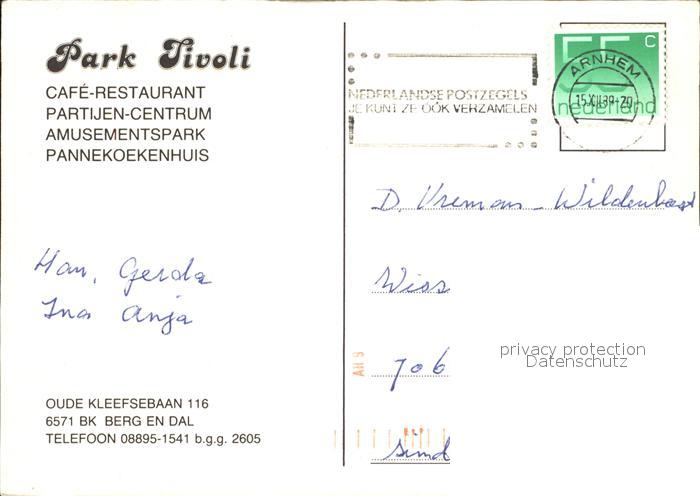 Park Tivoli
CAFÉ-RESTAURANT
PARTIJEN-CENTRUM
AMUSEMENTSPARK
PANNEKOEKENHUIS
Han, Gerda
Ina Anja
OUDE KLEEFSEBAAN 116
6571 BK BERG EN DAL
TELEFOON 08895-1541 b.g.g. 2605
NEDERLANDSE POSTZEGELS
JE KUNT ZE ÓÓK VERZAMELEN
55 c
nederland
ARNHEM
D. Vreman-Wildenbeest
Wiss
706
Sind
privacy protection
Datenschutz